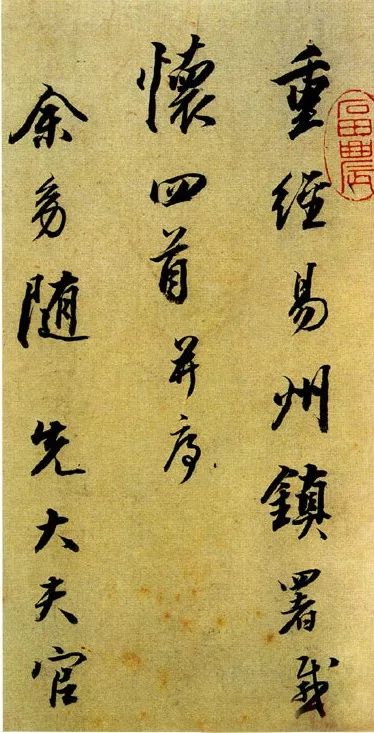 重經易州鎮署感
懷四首并序
余幼随先大夫官